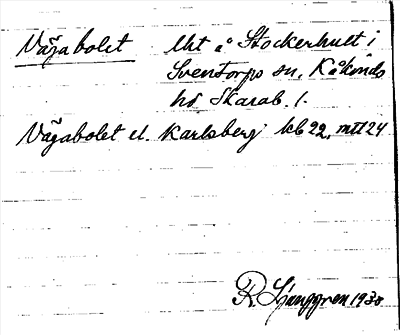 Vägabolet Uht å Stockerhult i
Sventorps sn, Kåkinds
hd Skarab. l.
Vägabolet el. Karlsberg kb 22, mtl 24
R. Ljunggren 1938